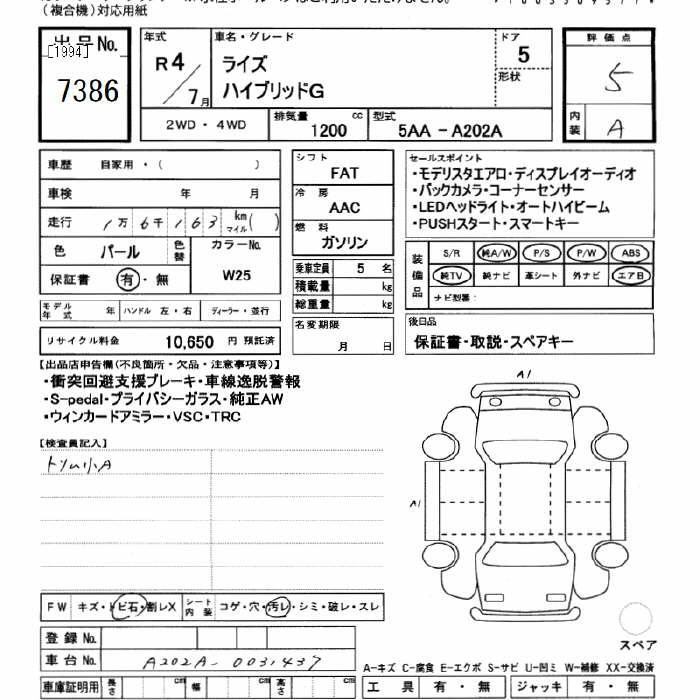 (複合機)対応用紙
出品No.
[1994]
7386
年式
R4/7月
車名・グレード
ライズ
ハイブリッドG
ドア
5
形状
評価点
5
内装
A
2WD・4WD
排気量 1200 cc
型式 5AA-A202A
車歴 自家用・( )
車検 年 月
走行 1万6千163 km マイル( )
色 パール 色替
カラーNo. W25
保証書 有・無
モデル年式 年 ハンドル 左・右 ディーラー・並行
リサイクル料金 10,650 円 預託済
シフト
FAT
冷房
AAC
燃料
ガソリン
乗車定員 5 名
積載量 kg
総重量 kg
名変期限
月 日
セールスポイント
・モデリスタエアロ・ディスプレイオーディオ
・バックカメラ・コーナーセンサー
・LEDヘッドライト・オートハイビーム
・PUSHスタート・スマートキー
装備品
S/R 純A/W P/S P/W ABS
純TV 純ナビ 革シート 外ナビ エアB
ナビ型番:
後日品
保証書・取説・スペアキー
【出品店申告欄(不良箇所・欠品・注意事項等)】
・衝突回避支援ブレーキ・車線逸脱警報
・S-pedal・プライバシーガラス・純正AW
・ウィンカードアミラー・VSC・TRC
【検査員記入】
トリム小A
A1
A1
FW キズ・トビ石・割レX
シート内装 コゲ・穴・汚レ・シミ・破レ・スレ
登録No.
車台No. A202A-0031437
車庫証明用 長さ cm 幅 cm 高さ cm
スペア
A-キズ C-腐食 E-エクボ S-サビ U-凹ミ W-補修 XX-交換済
工具 有・無 ジャッキ 有・無